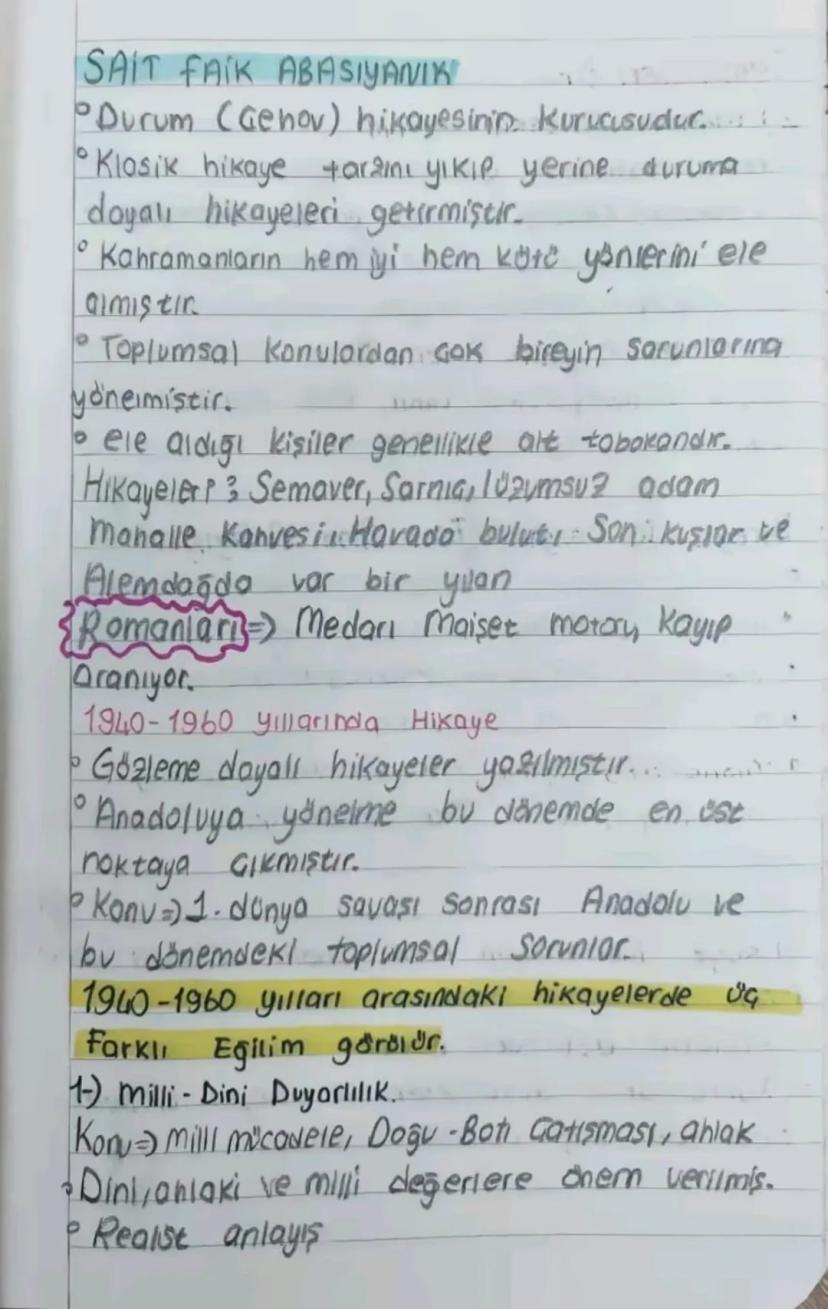 SAİT FAİK ABASIYANIK
° Durum (Çehov) hikayesinin kurucusudur.
° Klasik hikaye tarzını yıkıp yerine duruma
dayalı hikayeleri getirmiştir.
° Kahramanların hem iyi hem kötü yönlerini ele
almıştır.
° Toplumsal konulardan çok bireyin sorunlarına
yönelmiştir.
° ele aldığı kişiler genellikle alt tabakandır.
Hikayeler: Semaver, Sarnıç, lüzumsuz adam
Mahalle Kahvesi, Havada bulut, Son kuşlar ve
Alemdağda var bir yılan
Romanları => Medarı Maişet motoru, Kayıp
aranıyor.
1940-1960 yıllarında Hikaye
° Gözleme dayalı hikayeler yazılmıştır.
° Anadoluya yönelme bu dönemde en üst
noktaya çıkmıştır.
° Konu => 1. dünya savaşı sonrası Anadolu ve
bu dönemdeki toplumsal sorunlar.
1940-1960 yılları arasındaki hikayelerde üç
farklı Eğilim görülür.
1-) Milli - Dini Duyarlılık.
Konu => Milli mücadele, Doğu - Batı Çatışması, ahlak
° Dini, ahlaki ve milli değerlere önem verilmiş.
° Realist anlayış